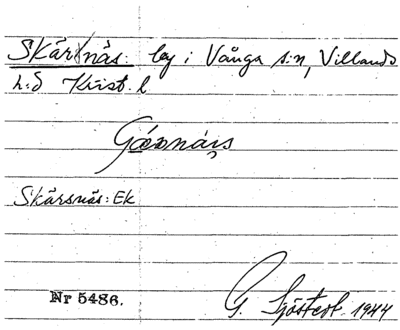 Skär/näs: by i Vånga s:n, Villands
h:d Krist. l
Skärsnäs: Ek
Nr 5486.
G. Sjöstedt 1944